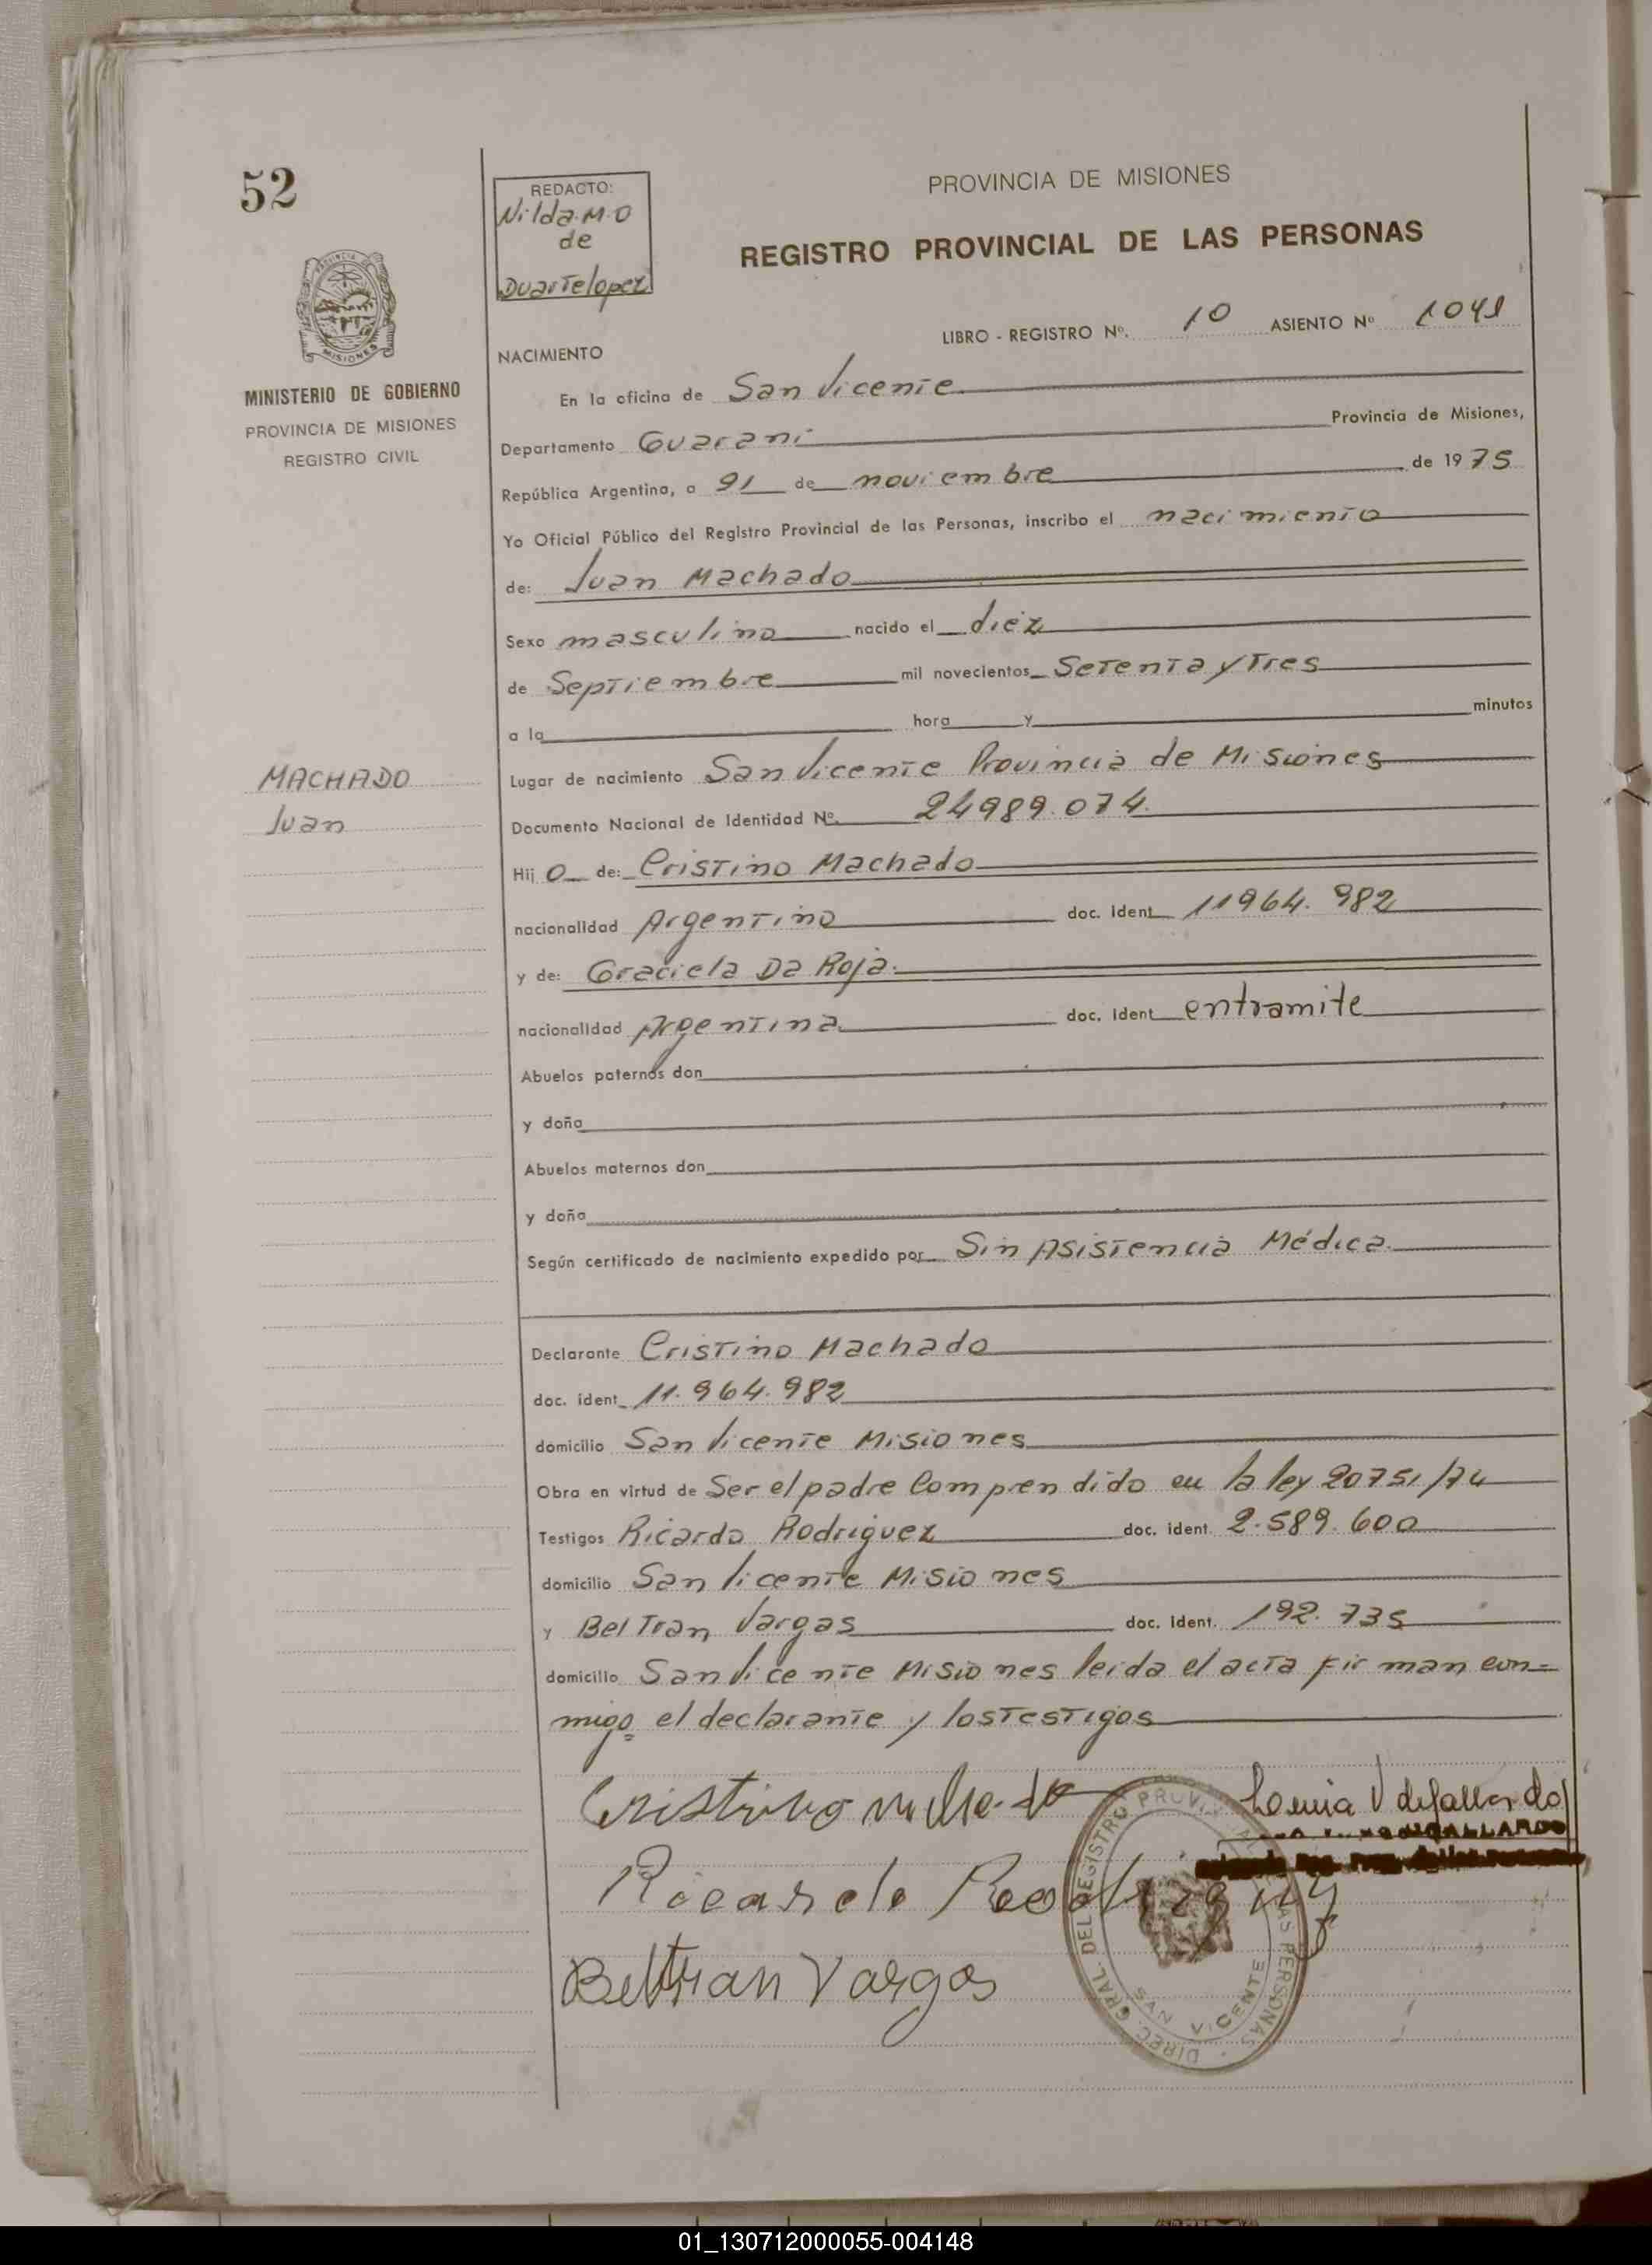 52
REDACTO:
Nilda.M.D
de
Duartelopez
PROVINCIA DE MISIONES
REGISTRO PROVINCIAL DE LAS PERSONAS
PROVINCIA DE
MISIONES
MINISTERIO DE GOBIERNO
PROVINCIA DE MISIONES
REGISTRO CIVIL
LIBRO - REGISTRO Nº. 10 ASIENTO Nº 1041
NACIMIENTO
En la oficina de San Vicente
Departamento Guarani Provincia de Misiones,
República Argentina, a 21 de noviembre de 1975
Yo Oficial Público del Registro Provincial de las Personas, inscribo el nacimiento
de: Juan Machado
Sexo masculino nacido el diez
de Septiembre mil novecientos Setenta y Tres
a la hora y minutos
MACHADO
Juan
Lugar de nacimiento San Vicente Provincia de Misiones
Documento Nacional de Identidad Nº. 24989.074.
Hij o de: Cristino Machado
nacionalidad Argentino doc. Ident 11964.982
y de: Graciela Da Roja.
nacionalidad Argentina doc. Ident entramite
Abuelos paternos don
y doña
Abuelos maternos don
y doña
Según certificado de nacimiento expedido por Sin Asistencia Médica.
Declarante Cristino Machado
doc. ident 11.964.982
domicilio San Vicente Misiones
Obra en virtud de Ser el padre Comprendido en la ley 20751/74
Testigos Ricardo Rodriguez doc. ident. 2.589.600
domicilio San Vicente Misiones
y Beltran Vargas doc. Ident. 192.735
domicilio San Vicente Misiones leida el acta firman con=
migo el declarante y los Testigos
Cristino
Ricardo Rodriguez
Beltran Vargas
DIREC. GRAL. DEL REGISTRO PROV. DE LAS PERSONAS
SAN VICENTE
01_130712000055-004148